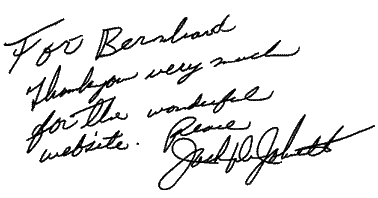 For Bernhard
Thank you very much
for the wonderful
website. Peace